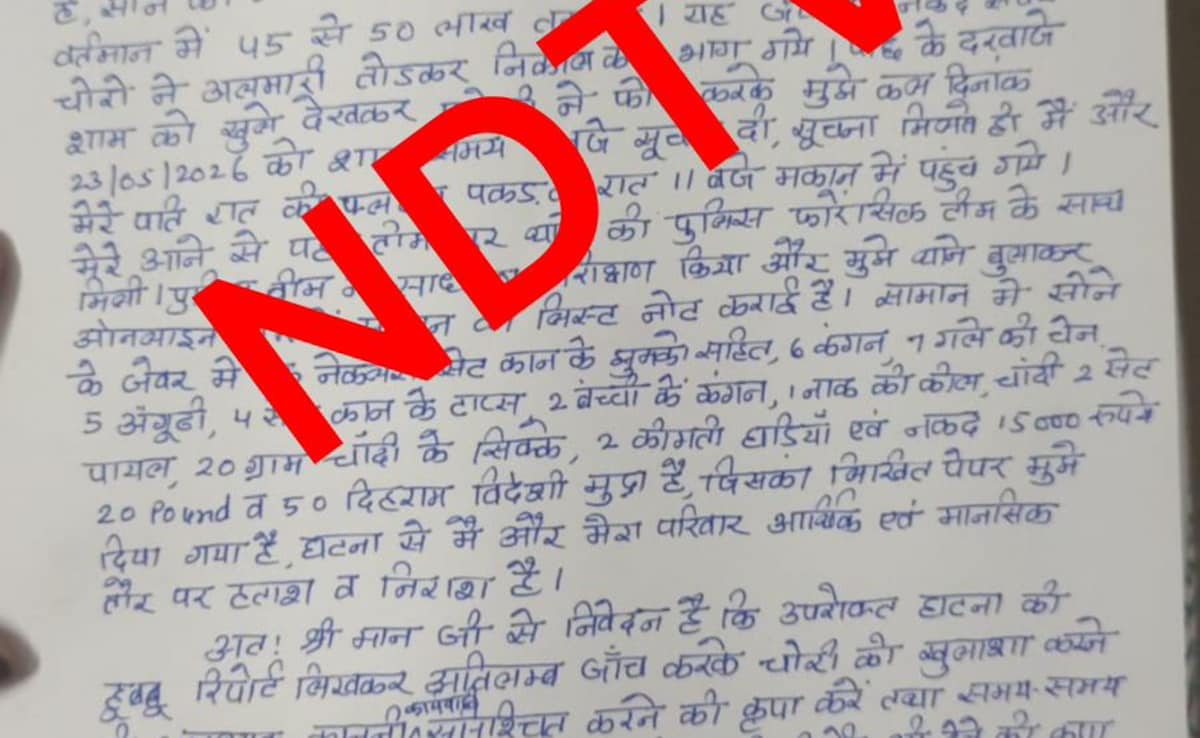 है,
वर्तमान में 45 से 50 लाख यह
चोरो ने अलमारी तोडकर निकाल भाग गये। के दरवाजे
शाम को खुले देखकर ने करके मुझे कल दिनांक
23/05/2026 को समय दी, सूचना मिलते ही मैं और
मेरे पति रात की पकड़ रात 11 बजे मकान में पहुंच गये।
मेरे आने से की पुलिस फोरेंसिक टीम के साथ
मिली। टीम किया और मुझे थाने बुलाकर
ओनलाइन लिस्ट नोट कराई है। सामान मे सोने
के जेवर मे सेट कान के झुमको सहित, 6 कंगन, 7 गले की चेन,
5 अंगूठी, 4 कान के टाप्स, 2 बच्चों के कंगन, 1 नाक की कील, चांदी 2 सेट
पायल, 20 ग्राम चाँदी के सिक्के, 2 कीमती घडियाँ एवं नकद 15000 रूपये
20 Pound व 50 दिहराम विदेशी मुद्रा है, जिसका लिखित पेपर मुझे
दिया गया है, घटना से मै और मेरा परिवार आर्थिक एवं मानसिक
तौर पर हताश व निराश है।
अत! श्री मान जी से निवेदन है कि उपरोक्त घटना की
हूबहू रिपोर्ट लिखकर अतिलम्ब जाँच करके चोरी को खुलाशा करने
कार्यवाही
करने की कृपा करें तथा समय-समय
की कृपा
NDTV